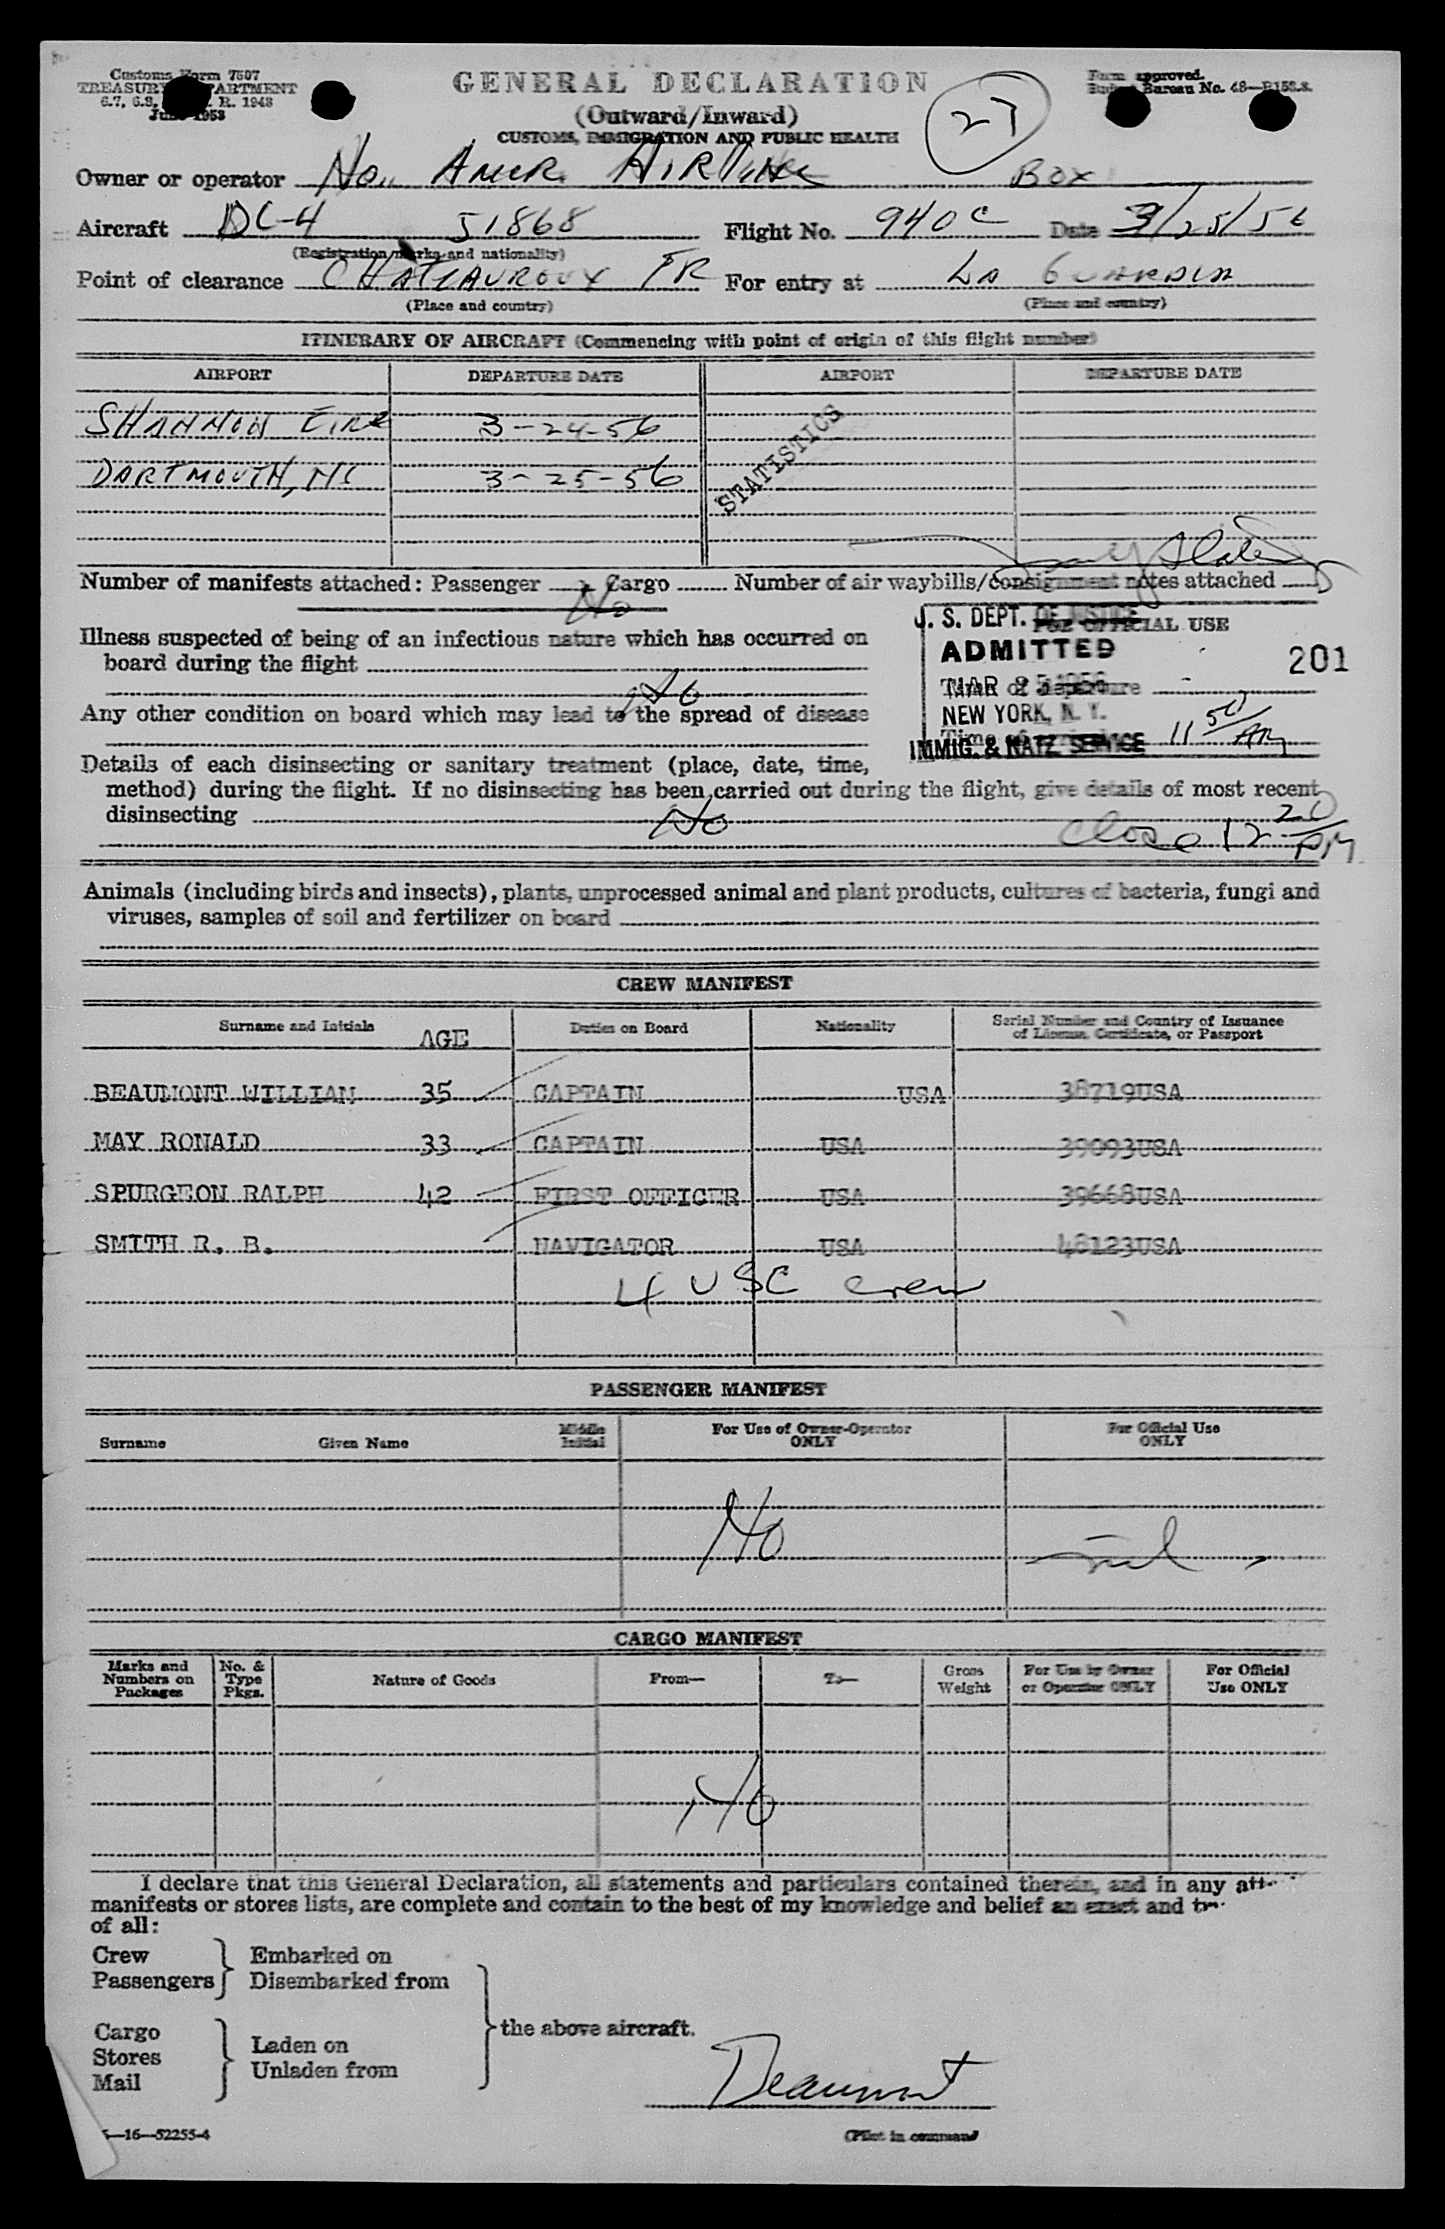 Customs Form 7507
TREASURY DEPARTMENT
June 1953
GENERAL DECLARATION
(Outward/Inward)
CUSTOMS, IMMIGRATION AND PUBLIC HEALTH
Form approved.
Budget Bureau No. 48—R153.3.
27
Owner or operator No. Amer. Airline Box
Aircraft DC-4 51868 Flight No. 940C Date 3/25/56
(Registration marks and nationality)
Point of clearance CHATEAUROUX FR For entry at La Guardia
(Place and country) (Place and country)
ITINERARY OF AIRCRAFT (Commencing with point of origin of this flight number)
AIRPORT DEPARTURE DATE AIRPORT DEPARTURE DATE
SHANNON EIRE 3-24-56
DARTMOUTH, NS 3-25-56
STATISTICS
Number of manifests attached: Passenger Cargo Number of air waybills/consignment notes attached
No
Illness suspected of being of an infectious nature which has occurred on
board during the flight
No
Any other condition on board which may lead to the spread of disease
FOR OFFICIAL USE
U. S. DEPT. OF JUSTICE
ADMITTED
201
MAR 25 1956
Time of departure
NEW YORK, N. Y.
Time of
IMMIG. & NATZ. SERVICE
11 50/AM
Details of each disinsecting or sanitary treatment (place, date, time,
method) during the flight. If no disinsecting has been carried out during the flight, give details of most recent
disinsecting No
Close 12 20/PM
Animals (including birds and insects), plants, unprocessed animal and plant products, cultures of bacteria, fungi and
viruses, samples of soil and fertilizer on board
CREW MANIFEST
Surname and Initials AGE Duties on Board Nationality Serial Number and Country of Issuance
of License, Certificate, or Passport
BEAUMONT WILLIAM 35 CAPTAIN USA 38719USA
MAY RONALD 33 CAPTAIN USA 39093USA
SPURGEON RALPH 42 FIRST OFFICER USA 39668USA
SMITH R. B. NAVIGATOR USA 48123USA
4 USC crew
PASSENGER MANIFEST
Surname Given Name Middle Initial For Use of Owner-Operator ONLY For Official Use ONLY
No
nil
CARGO MANIFEST
Marks and Numbers on Packages No. & Type Pkgs. Nature of Goods From— To— Gross Weight For Use by Owner or Operator ONLY For Official Use ONLY
No
I declare that this General Declaration, all statements and particulars contained therein, and in any
manifests or stores lists, are complete and contain to the best of my knowledge and belief an exact and
of all:
Crew Embarked on
Passengers Disembarked from
the above aircraft.
Cargo
Stores Laden on
Mail Unladen from
Beaumont
16—52255-4
(Pilot in command